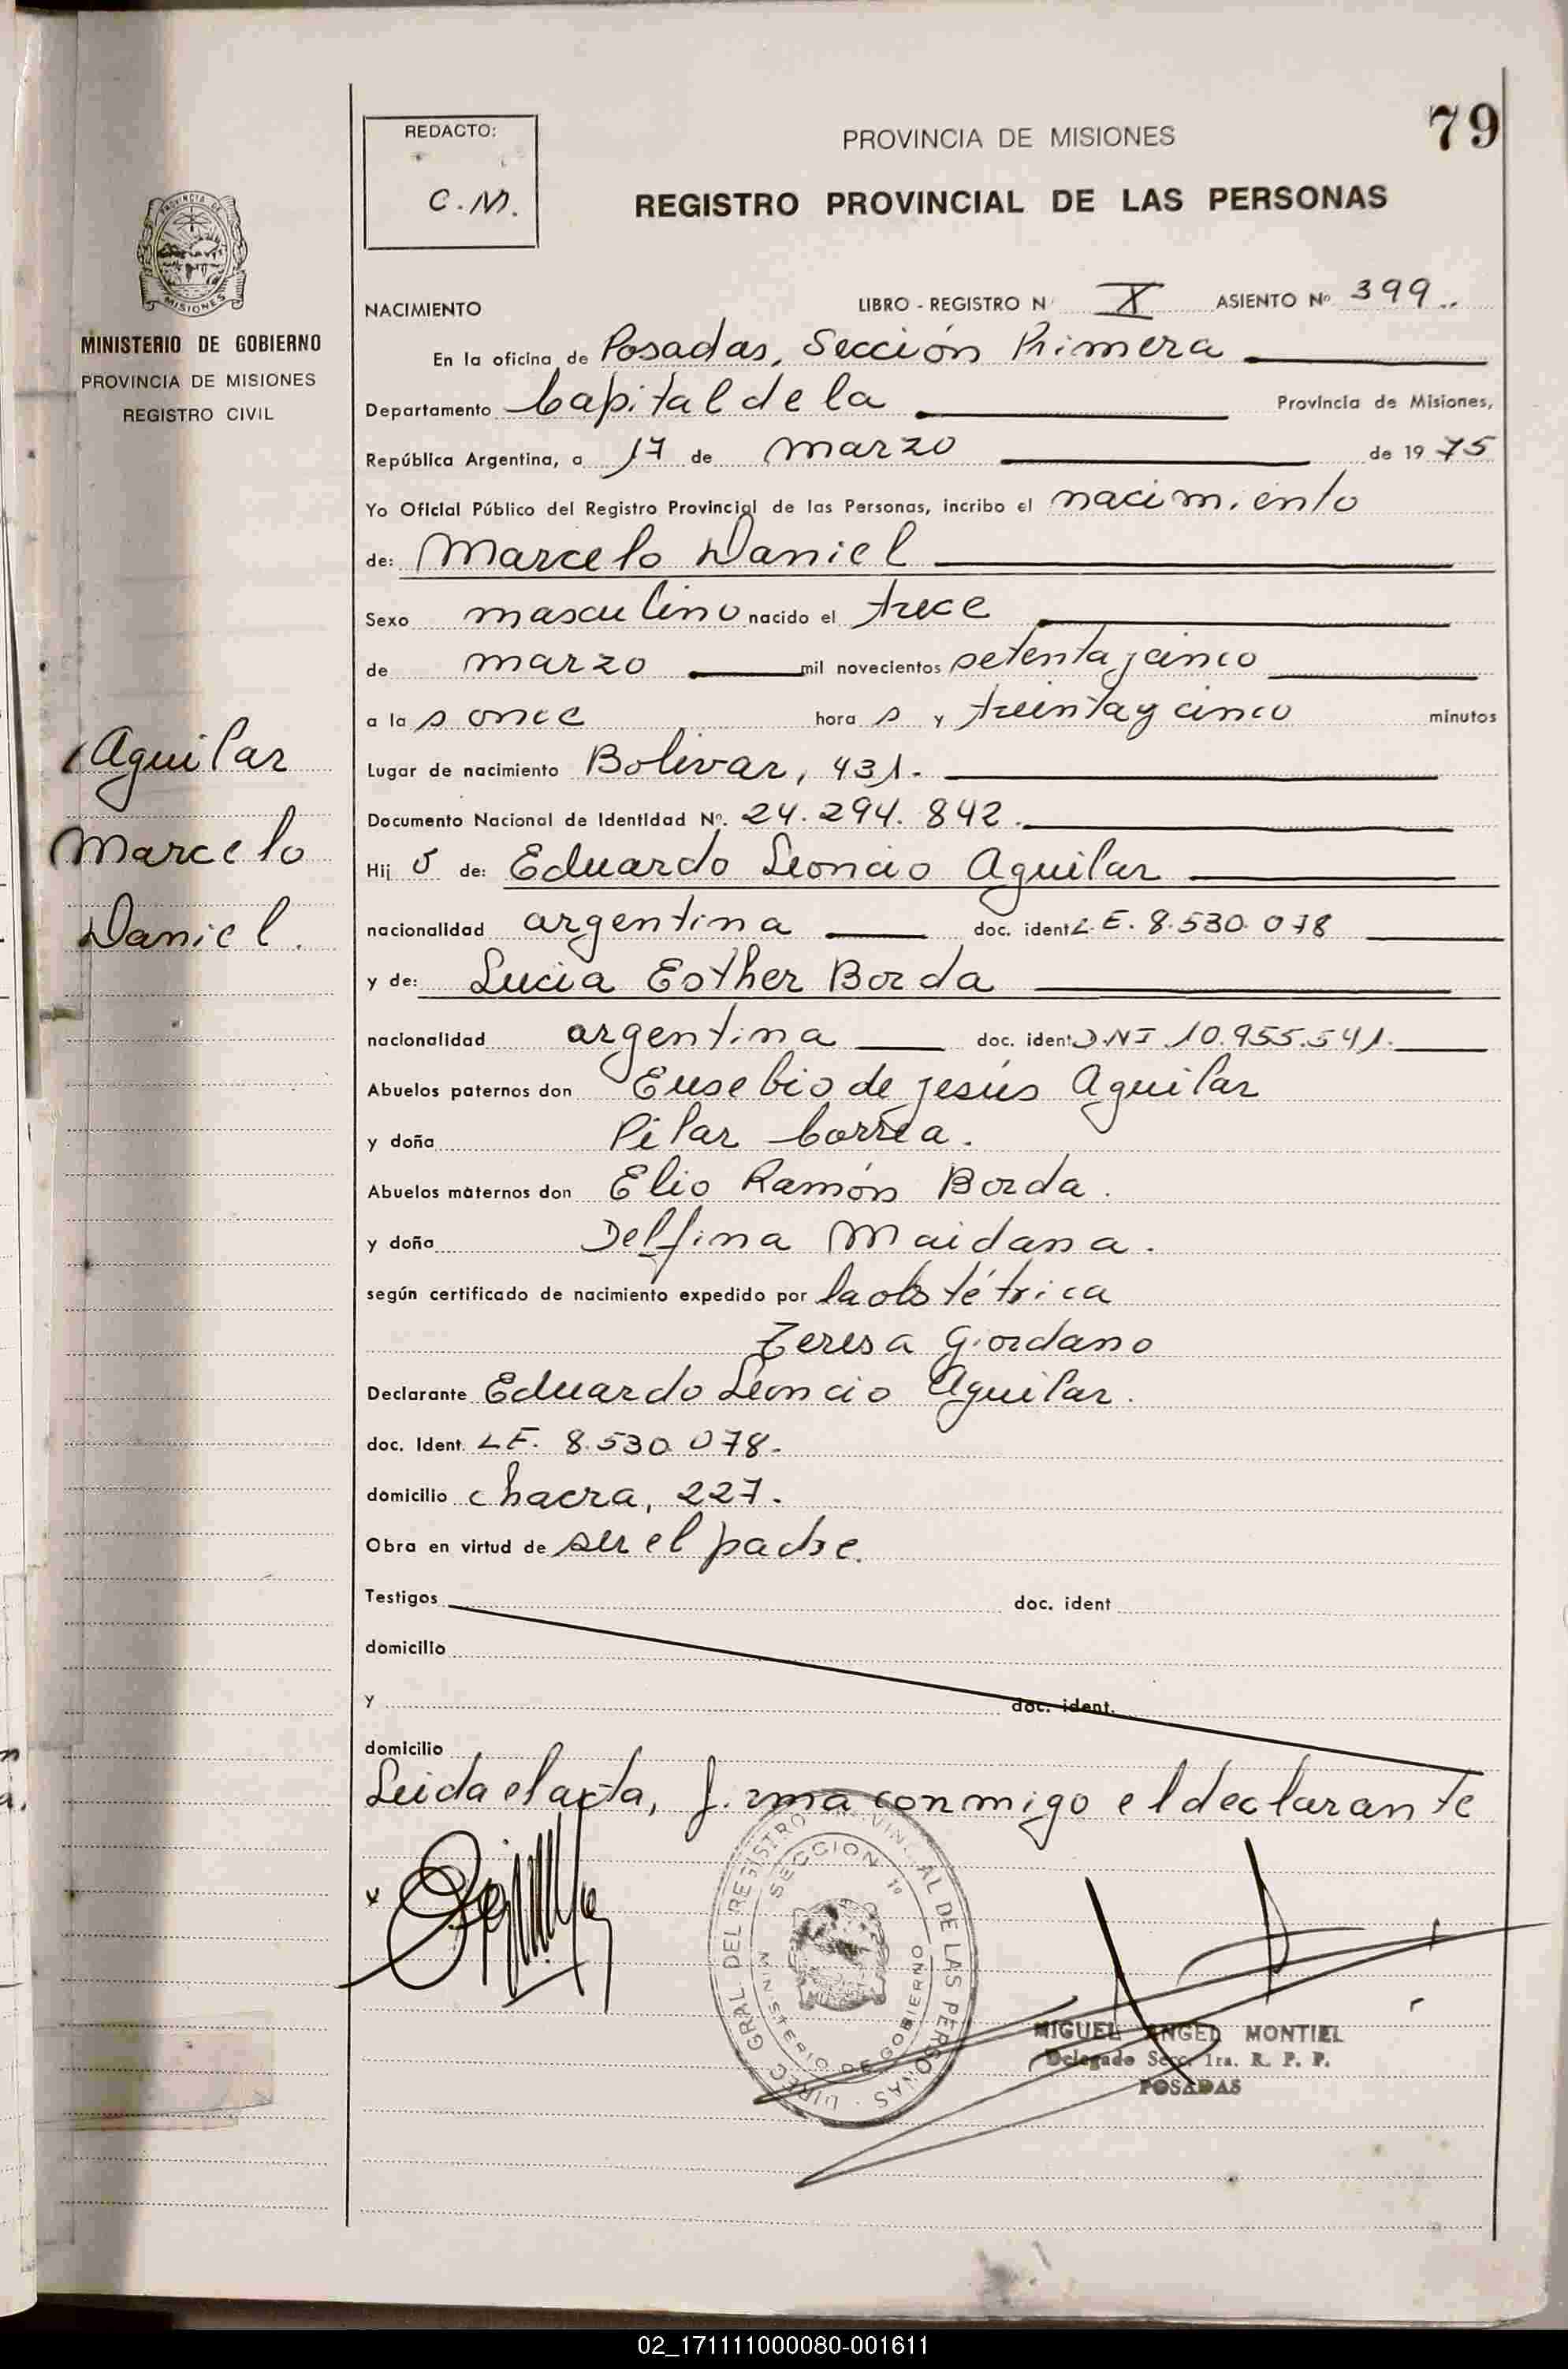 79
REDACTO:
C.M.
PROVINCIA DE MISIONES
REGISTRO PROVINCIAL DE LAS PERSONAS
PROVINCIA DE
MISIONES
MINISTERIO DE GOBIERNO
PROVINCIA DE MISIONES
REGISTRO CIVIL
Aguilar
Marcelo
Daniel.
NACIMIENTO LIBRO - REGISTRO N X ASIENTO Nº 399..
En la oficina de Posadas, Sección Primera
Departamento Capital de la Provincia de Misiones,
República Argentina, a 17 de marzo de 19 75
Yo Oficial Público del Registro Provincial de las Personas, incribo el nacimiento
de: Marcelo Daniel
Sexo masculino nacido el trece
de marzo mil novecientos setenta y cinco
a la s once hora s y treinta y cinco minutos
Lugar de nacimiento Bolivar, 431.
Documento Nacional de Identidad Nº. 24.294.842.
Hij o de: Eduardo Leoncio Aguilar
nacionalidad argentina doc. ident L.E. 8.530.078
y de: Lucia Esther Borda
nacionalidad argentina doc. ident DNI 10.955.541.
Abuelos paternos don Eusebio de Jesús Aguilar
y doña Pilar Correa.
Abuelos maternos don Elio Ramón Borda.
y doña Delfina Maidana.
según certificado de nacimiento expedido por la obstétrica
Teresa Giordano
Declarante Eduardo Leoncio Aguilar.
doc. Ident. LE. 8.530.078.
domicilio chacra, 227.
Obra en virtud de ser el padre.
Testigos doc. ident
domicilio
y doc. ident.
domicilio
Leida el acta, firma conmigo el declarante
DIREC. GRAL. DEL REGISTRO PROVINCIAL DE LAS PERSONAS
SECCION 1º
MINISTERIO DE GOBIERNO
MIGUEL ANGEL MONTIEL
Delegado Secc. 1ra. R. P. P.
POSADAS
02_171111000080-001611